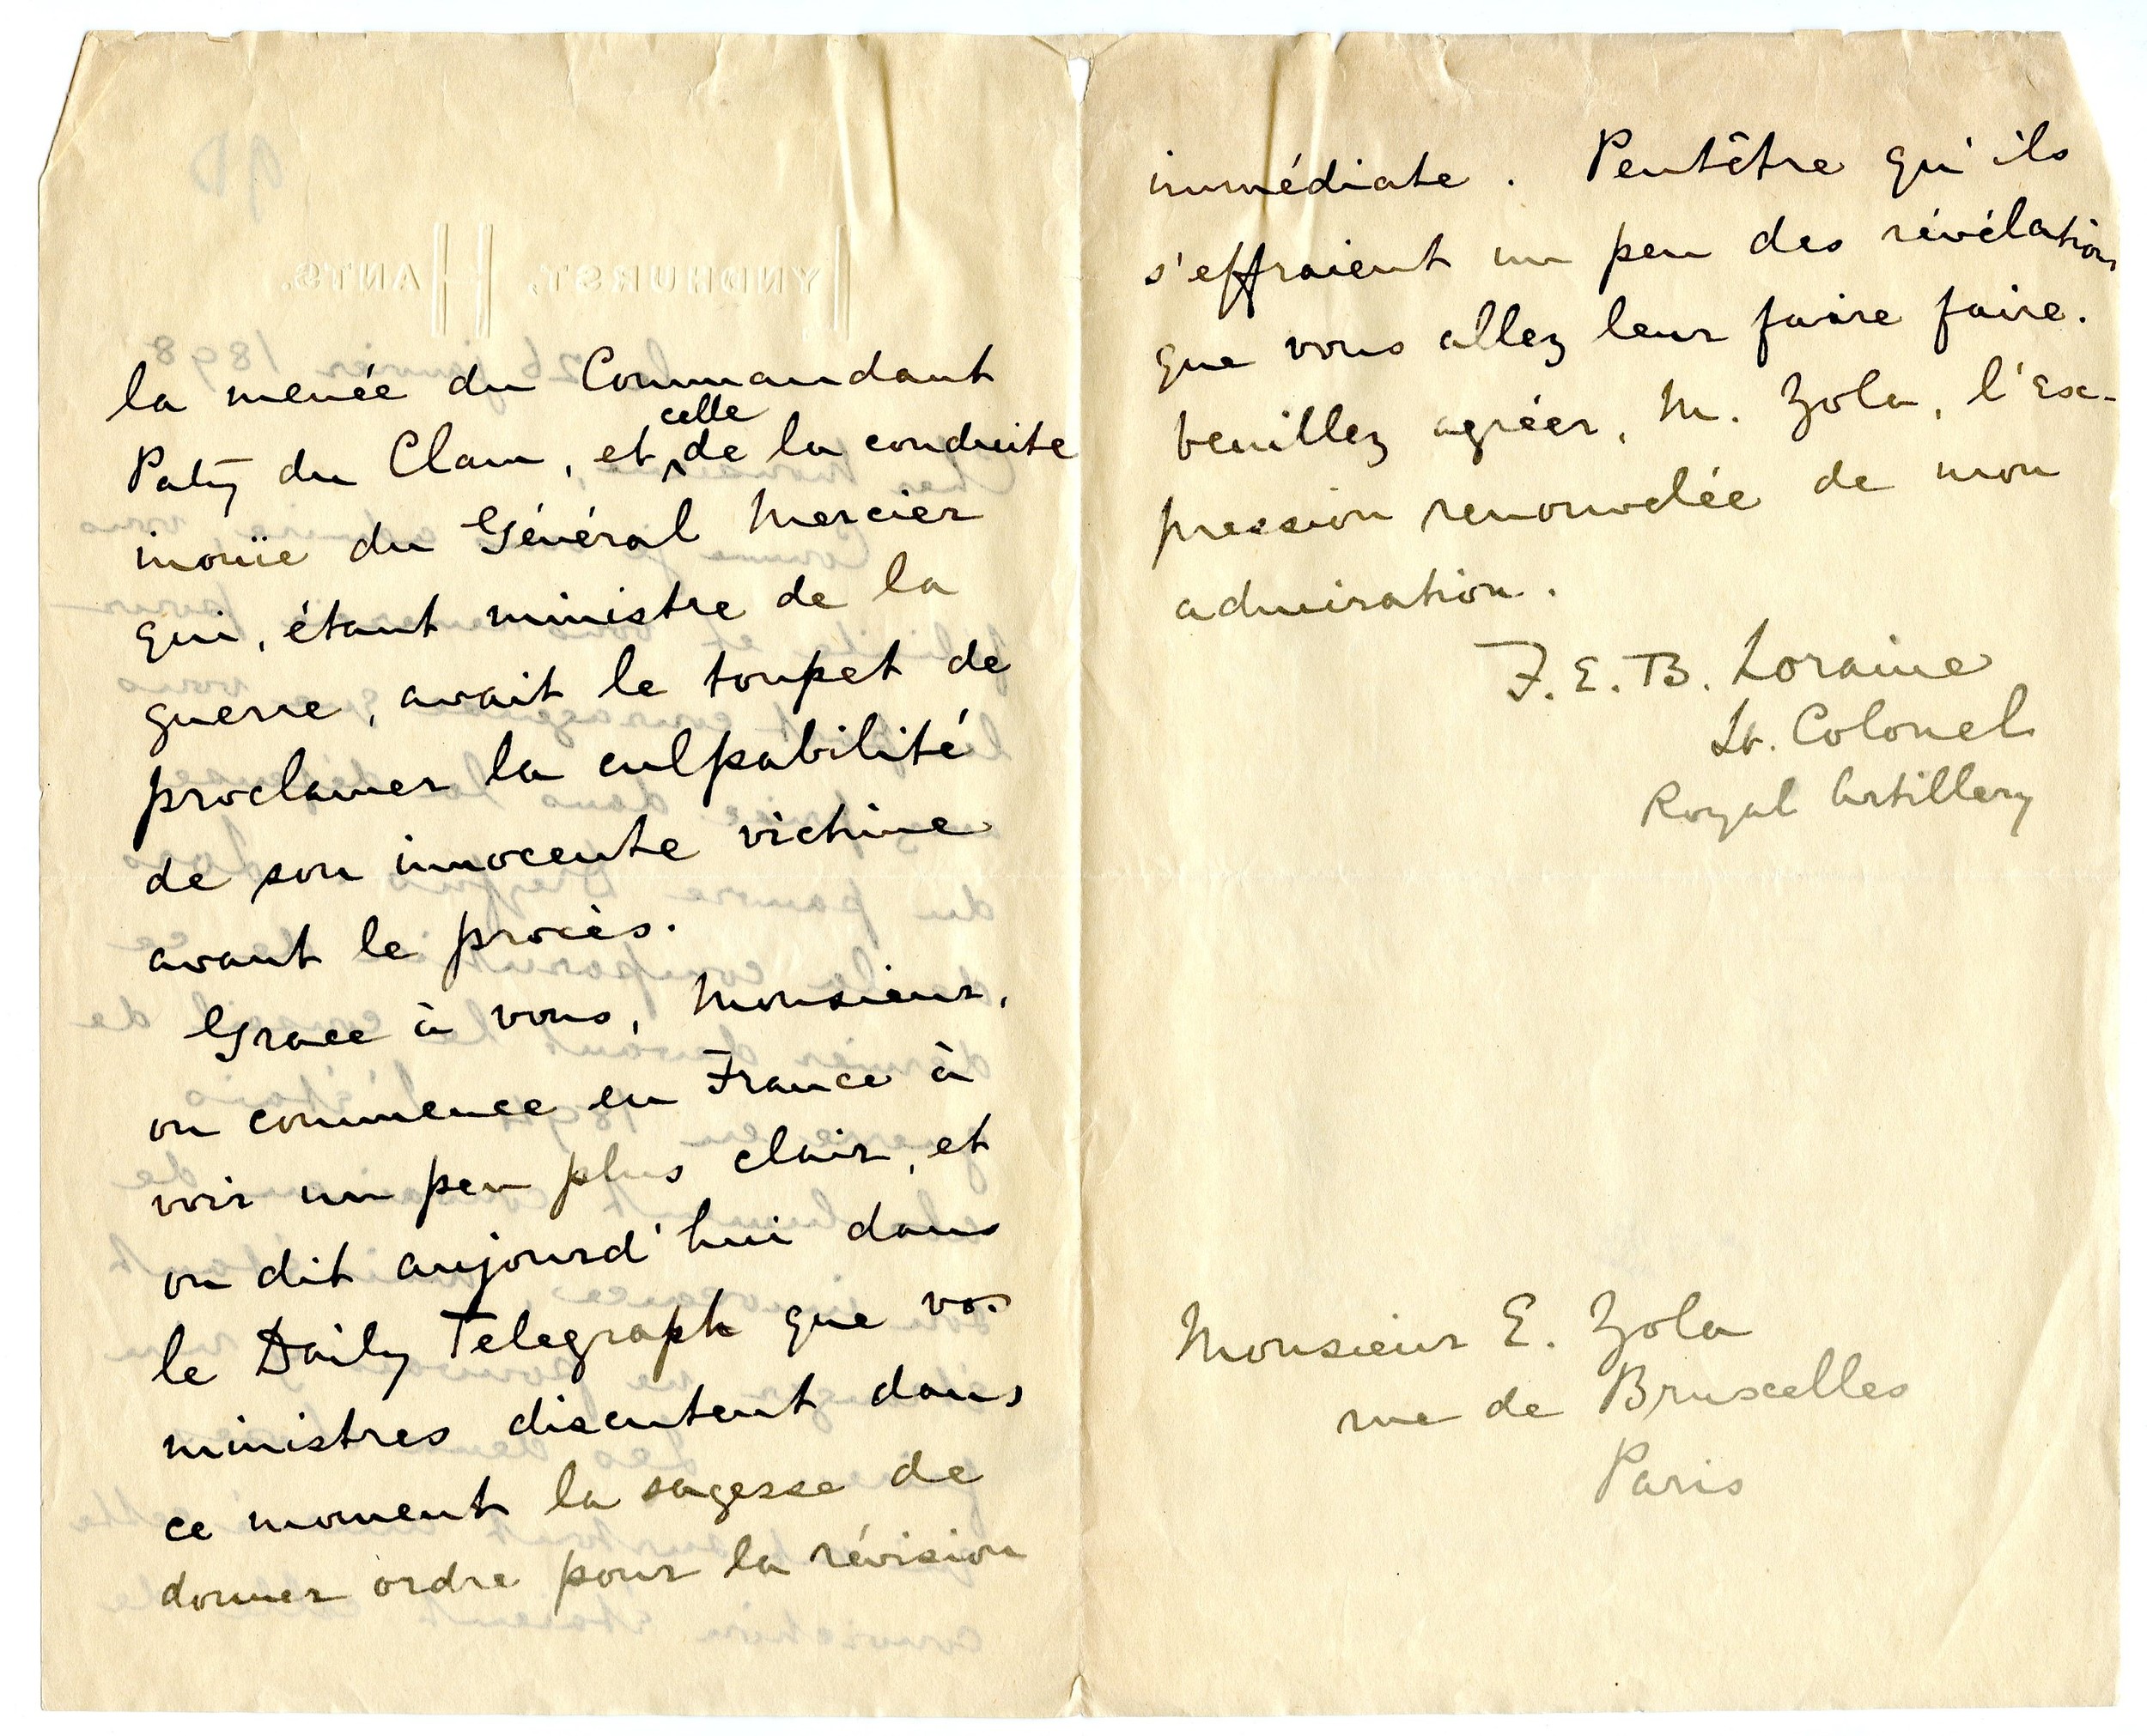 LYNDHURST, HANTS.
la menée du Commandant
celle
Paty du Clam, et de la conduite
inouïe du Général Mercier
qui, étant ministre de la
guerre, avait le toupet de
proclamer la culpabilité
de son innocente victime
avant le procès.
Grace à vous, Monsieur,
on commence en France à
voir un peu plus clair, et
on dit aujourd'hui dans
le Daily Telegraph que vos
ministres discutent dans
ce moment la sagesse de
donner ordre pour la révision
immédiate. Peutêtre qu'ils
s'effraient un peu des révélations
que vous allez leur faire faire.
Veuillez agréer, M. Zola, l'ex-
pression renouvelée de mon
admiration.
F. E. B. Loraine
Lt. Colonel
Royal Artillery
Monsieur E. Zola
rue de Bruxelles
Paris